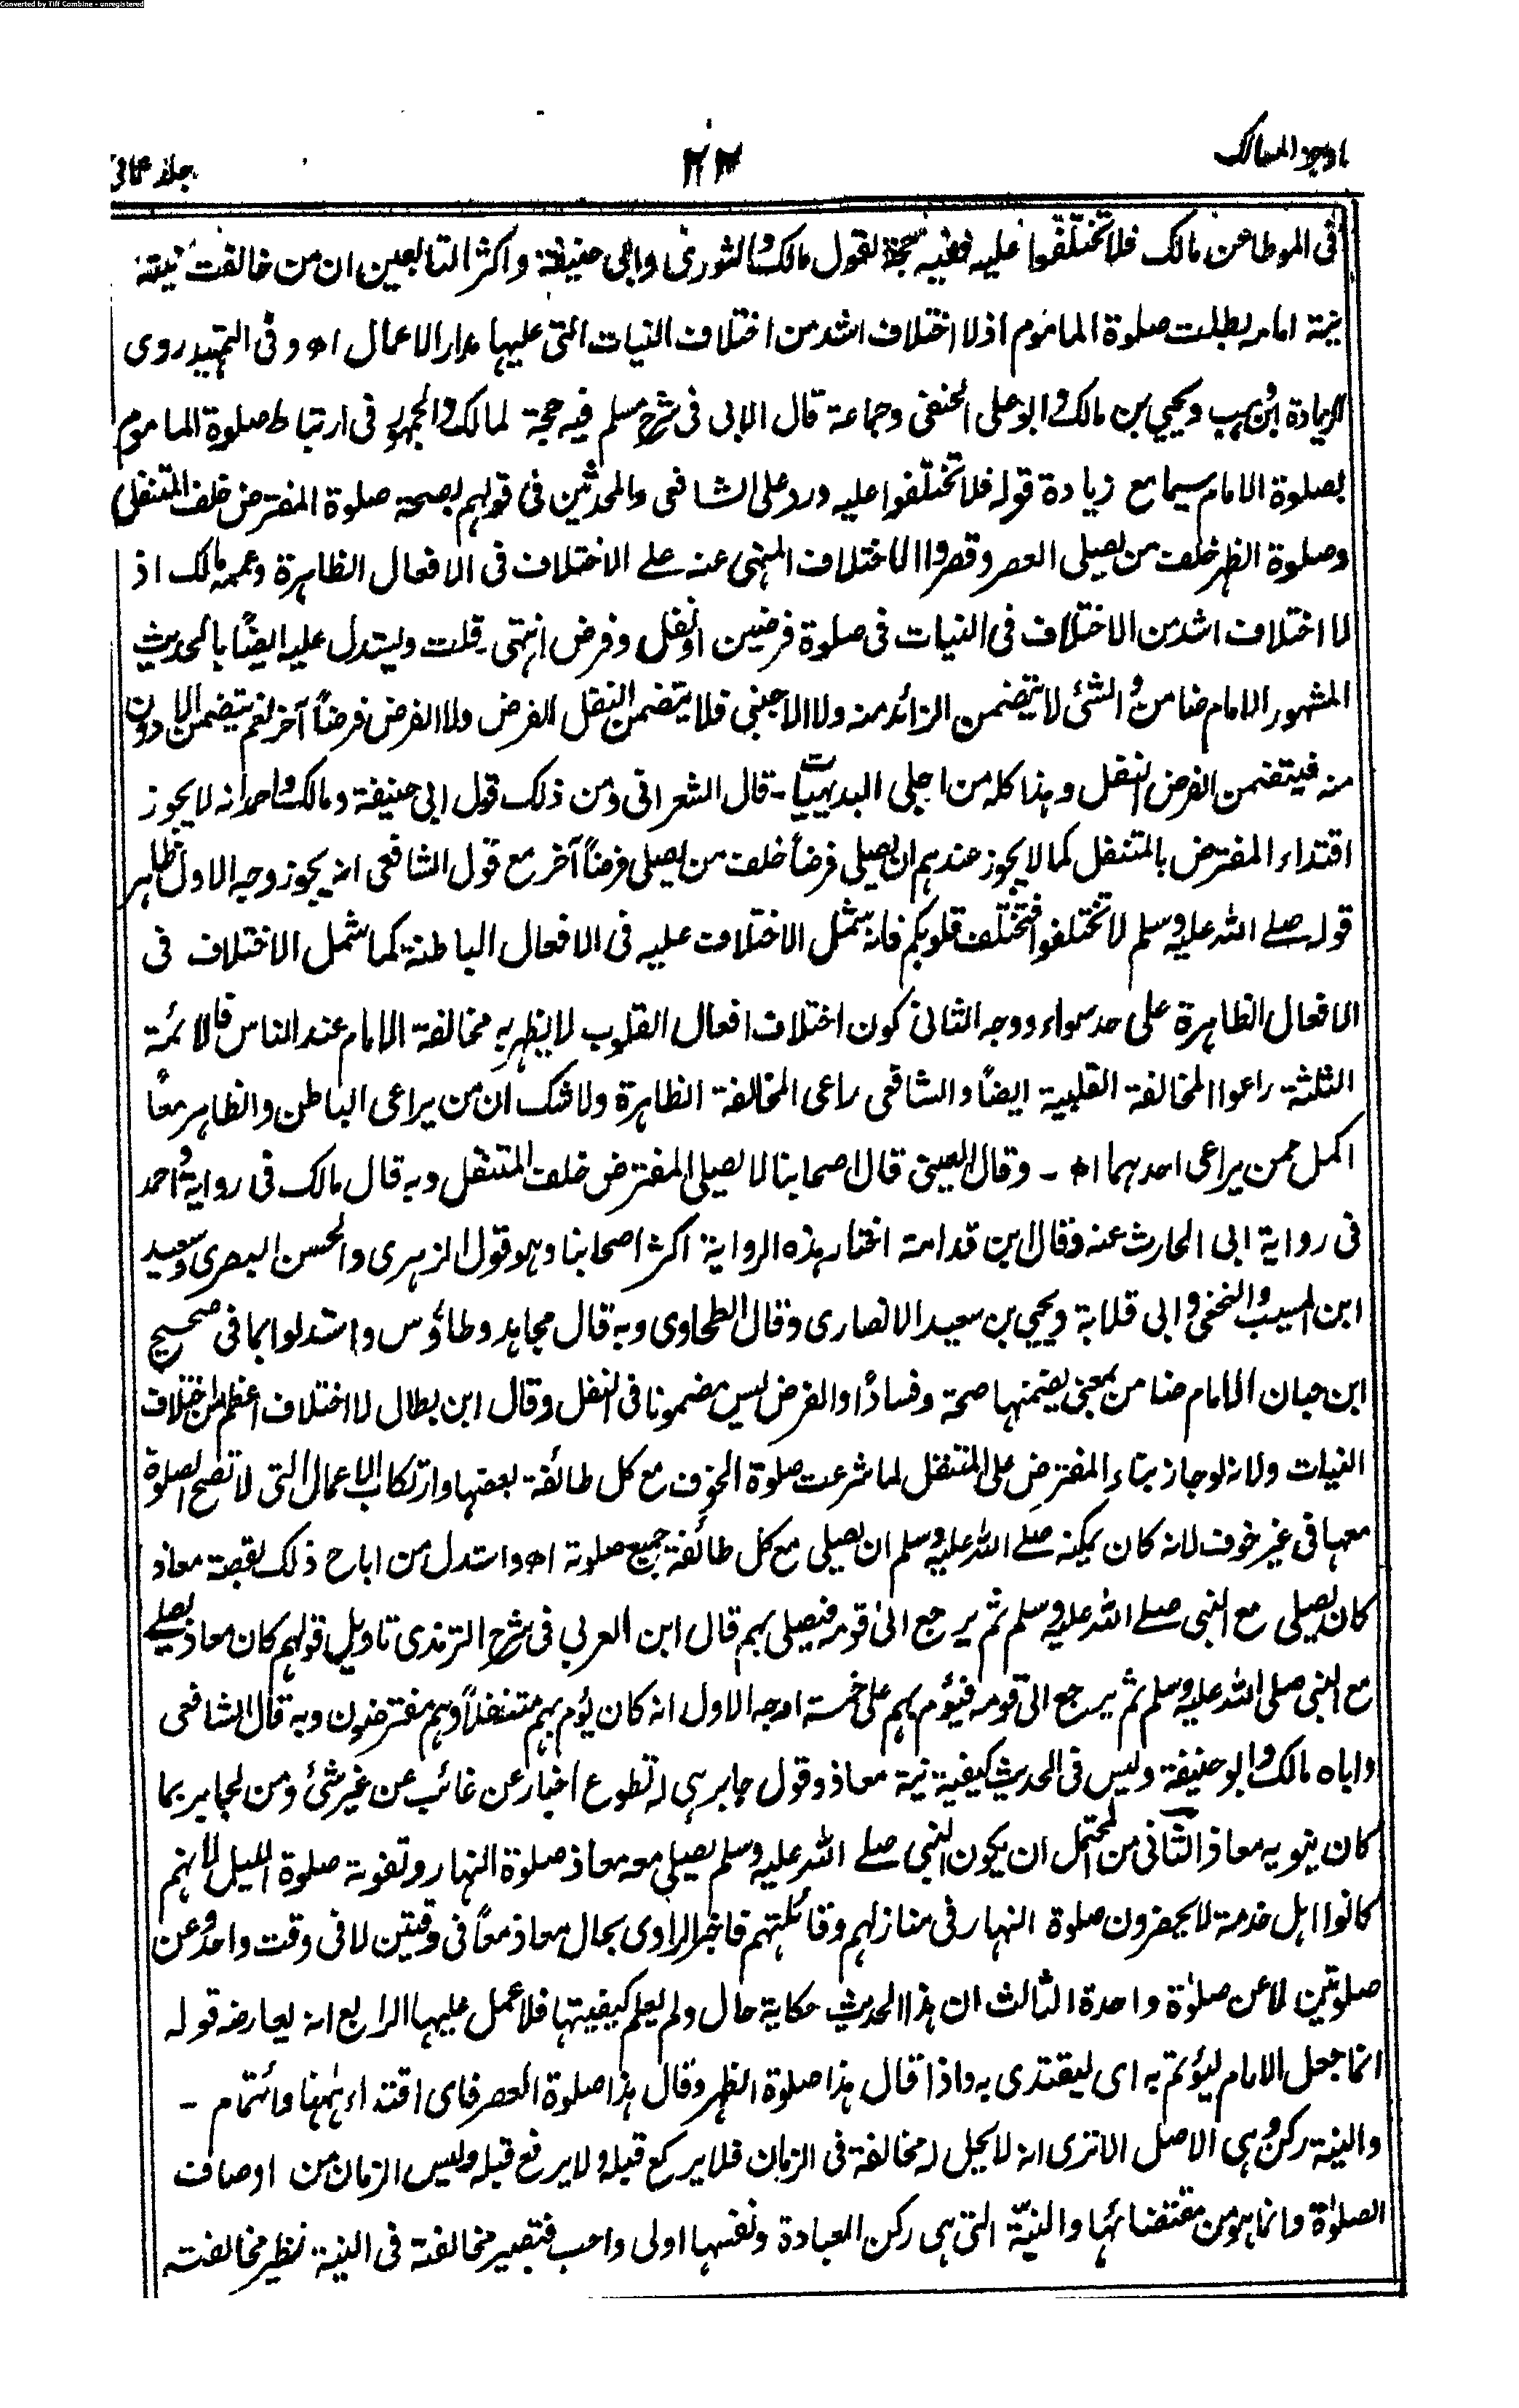 Converted by Tiff Combine - unregistered
اوجز المسالك
٢٢
جلد ثانی
فی الموطا عن مالك فلا تختلفوا علیه ففیه حجة لقول مالك والثوری وابی حنیفة واکثر التابعین ان من خالفت نیته
نیة امامه بطلت صلوة الماموم اذ لا اختلاف اشد من اختلاف النیات التی علیها مدار الاعمال اھ و فی التمهید روی
الزیادة ابن وهب ویحیی بن مالك وابو علی الحنفی وجماعة قال الابی فی شرح مسلم فیه حجة لمالك والجمهور فی ارتباط صلوة الماموم
بصلوة الامام سیما مع زیادة قوله فلا تختلفوا علیه ورد علی الشافعی والمحدثین فی قولهم بصحة صلوة المفترض خلف المتنفل
وصلوة الظهر خلف من یصلی العصر وقصروا الاختلاف المنهی عنه علے الاختلاف فی الافعال الظاهرة وعممه مالك اذ
لا اختلاف اشد من الاختلاف فی النیات فی صلوة فرضین او نفل وفرض انتهی۔ قلت ویستدل علیه ایضًا بالحدیث
المشهور الامام ضامن والشئ لا یتضمن الزائد منه ولا الاجنبی فلا یتضمن النفل الفرض ولا الفرض فرضاً آخر نعم یتضمن الادون
منه فیتضمن الفرض النفل وهذا کله من اجلی البدیهیات۔ قال الشعرانی ومن ذلك قول ابی حنیفة ومالك واحمد انه لا یجوز
اقتداء المفترض بالمتنفل کما لا یجوز عندهم ان یصلی فرضاً خلف من یصلی فرضاً آخر مع قول الشافعی انه یجوز وجه الاول ظاهر
قوله صلے الله علیه وسلم لا تختلفوا فتختلف قلوبکم فانه شمل الاختلاف علیه فی الافعال الباطنة کما شمل الاختلاف فی
الافعال الظاهرة علی حد سواء ووجه الثانی کون اختلاف افعال القلوب لا یظهر به مخالفة الامام عند الناس فالائمة
الثلثة راعوا المخالفة القلبیة ایضًا والشافعی راعی المخالفة الظاهرة ولا شك ان من یراعی الباطن والظاهر معًا
اکمل ممن یراعی احدهما اھ ۔ وقال العینی قال اصحابنا لا یصلی المفترض خلف المتنفل وبه قال مالك فی روایة واحمد
فی روایة ابی الحارث عنه وقال ابن قدامة اختار هذه الروایة اکثر اصحابنا وهو قول الزهری والحسن البصری وسعید
ابن المسیب والنخعی وابی قلابة ویحیی بن سعید الانصاری وقال الطحاوی وبه قال مجاهد وطاؤس واستدلوا بما فی صحیح
ابن حبان الامام ضامن بمعنی یضمنها صحة وفسادًا والفرض لیس مضمونا فی النفل وقال ابن بطال لا اختلاف اعظم من اختلاف
النیات ولانه لو جاز بناء المفترض علی المتنفل لما شرعت صلوة الخوف مع کل طائفة بعضها وارتکاب الاعمال التی لا تصح الصلوة
معها فی غیر خوف لانه کان یمکنه صلے الله علیه وسلم ان یصلی مع کل طائفة جمیع صلوته اھ واستدل من اباح ذلك بقصة معاذ
کان یصلی مع النبی صلے الله علیه وسلم ثم یرجع الی قومه فیصلی بهم قال ابن العربی فی شرح الترمذی تاویل قولهم کان معاذ یصلے
مع النبی صلی الله علیه وسلم ثم یرجع الی قومه فیؤم بهم علی خمسة اوجه الاول انه کان یؤم بهم متنفلاً وهم مفترضون وبه قال الشافعی
واباه مالك وابو حنیفة ولیس فی الحدیث کیفیة نیة معاذ وقول جابر هی له تطوع اخبار عن غائب عن غیر شئ ومن لجابر بما
کان ینویه معاذ الثانی من المحتمل ان یکون النبی صلے الله علیه وسلم یصلی معه معاذ صلوة النهار وتفوته صلوة اللیل لانهم
کانوا اهل خدمة لا یحضرون صلوة النهار فی منازلهم وقائلتهم فاخبر الراوی بحال معاذ معاً فی وقتین لا فی وقت واحد وعن
صلوتین لا عن صلوٰة واحدة الثالث ان هذا الحدیث حکایة حال ولم یعلم کیفیتها فلا عمل علیها الرابع انه یعارضه قوله
انما جعل الامام لیؤتم به ای لیقتدی به واذا قال هذا صلوة الظهر وقال هذا صلوة العصر فای اقتداء ههنا وائتمام ۔
والنیة رکن وهی الاصل الا تری انه لا یحل له مخالفة فی الزمان فلا یرکع قبله ولا یرفع قبله ولیس الزمان من اوصاف
الصلوٰة وانما هو من مقتضائها والنیّة التی هی رکن العبادة ونفسها اولی واجب فتصیر مخالفته فی النیة نظیر مخالفته